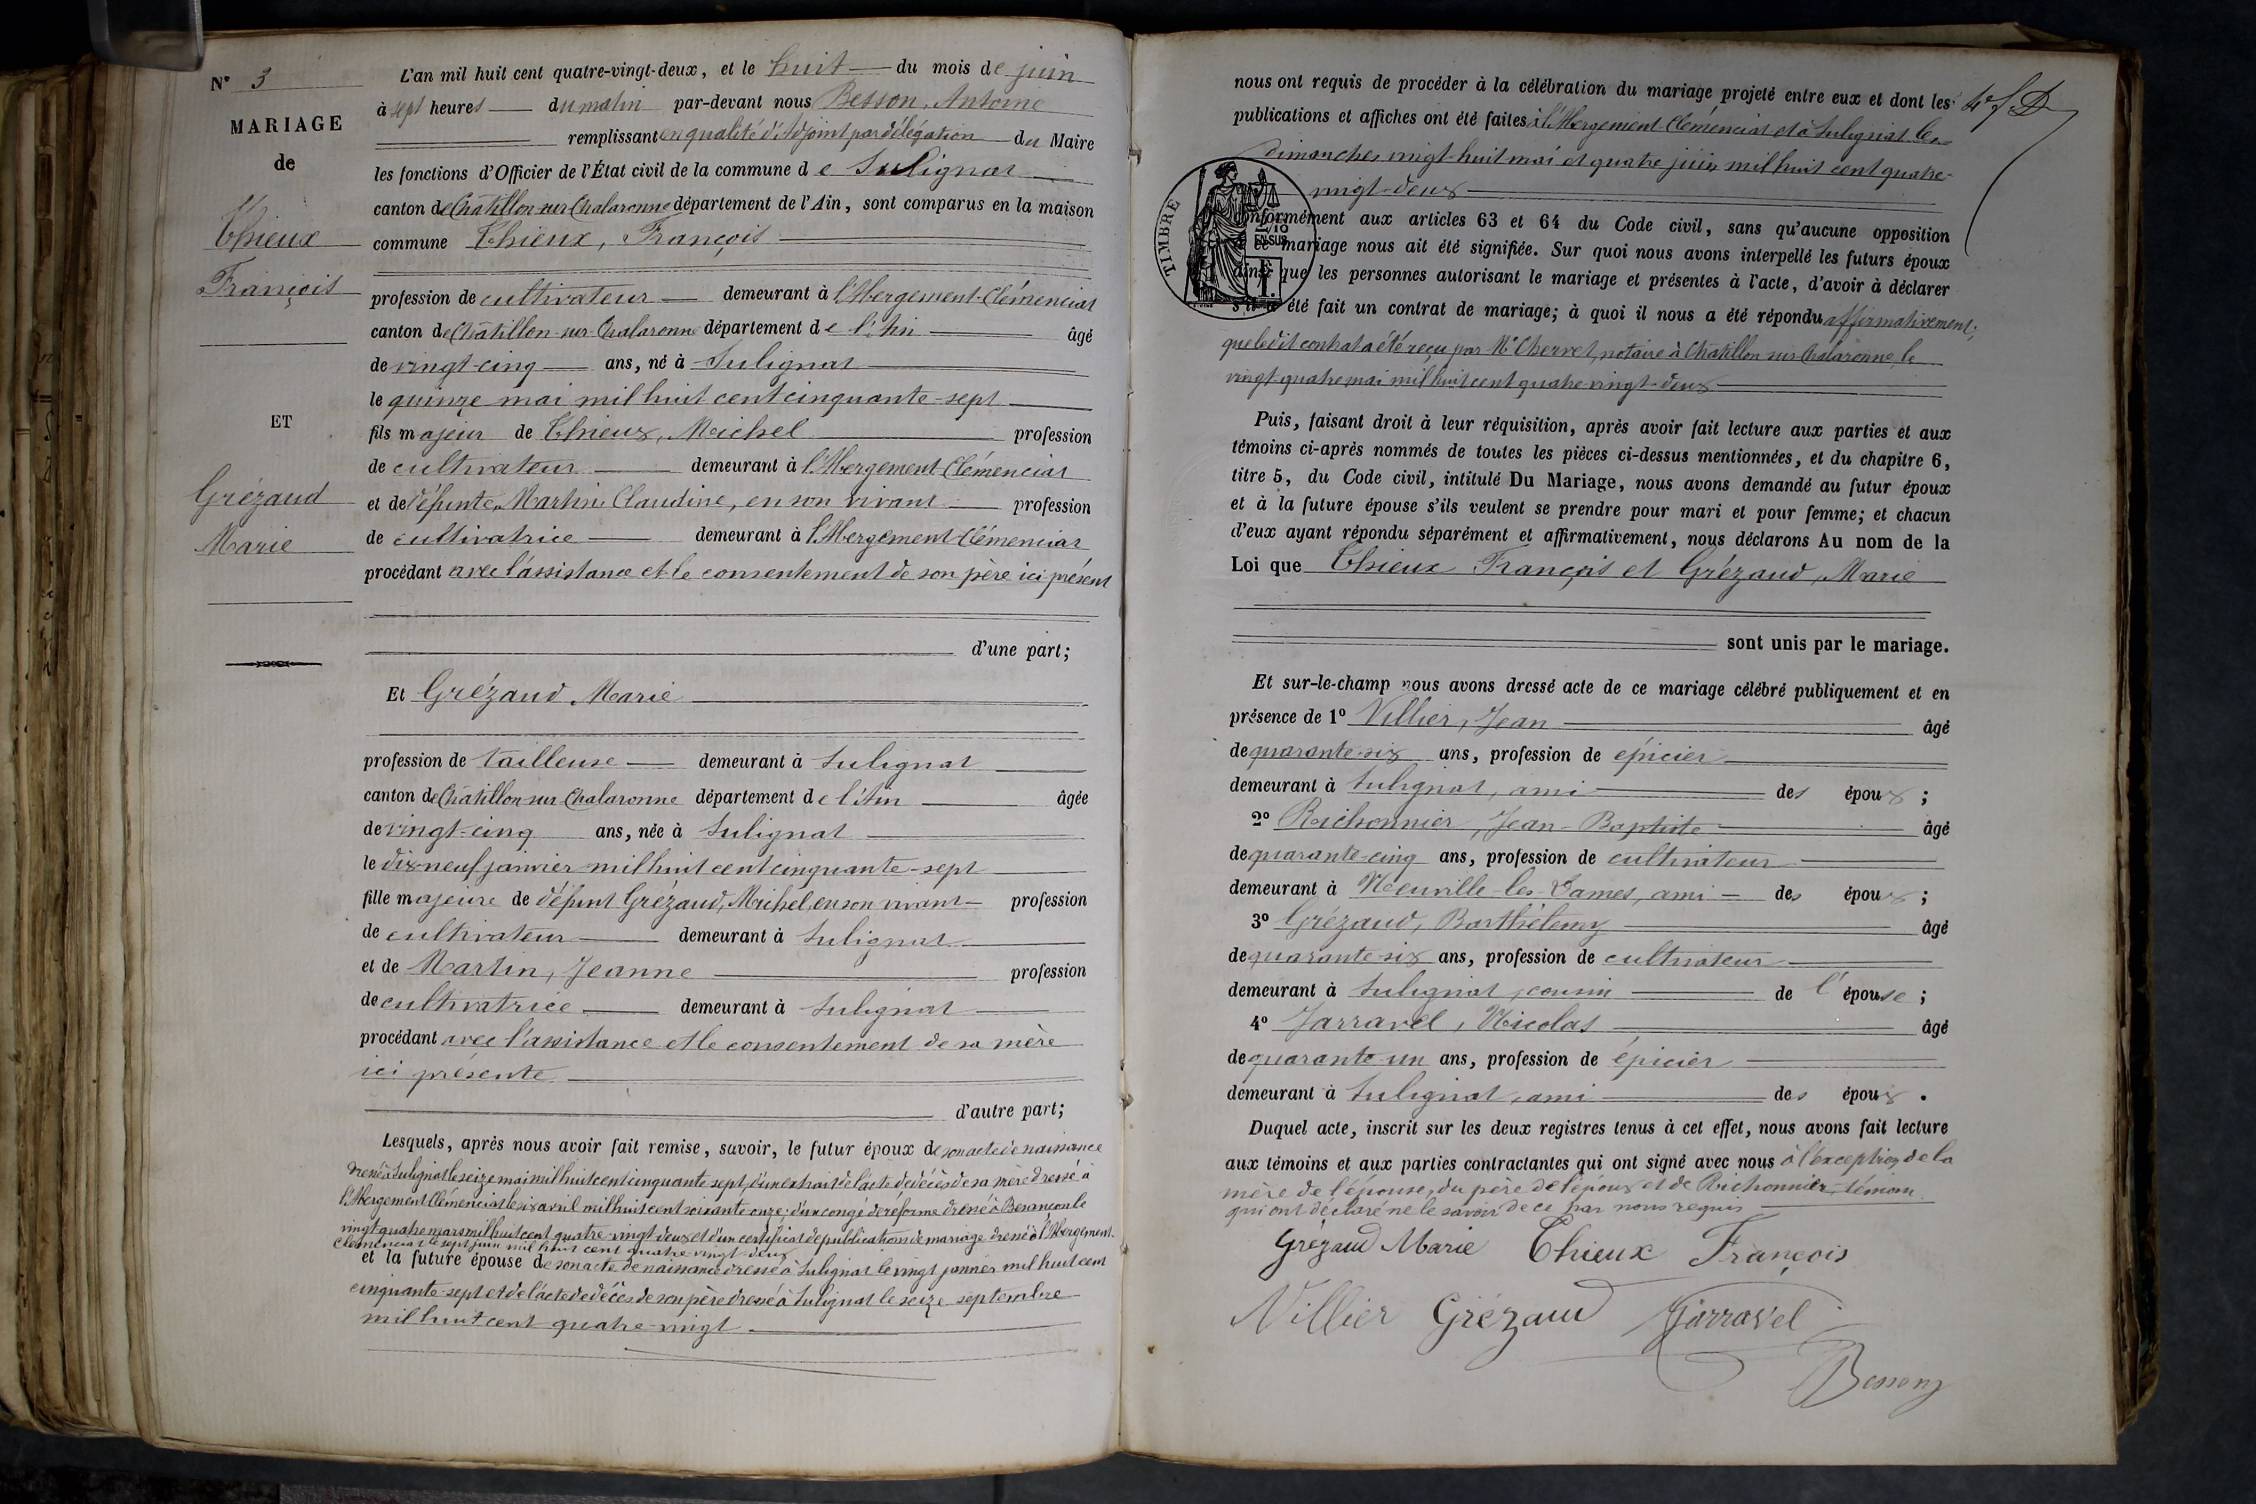 N° 3
MARIAGE
de
Thieux
François
ET
Grézaud
Marie
L'an mil huit cent quatre-vingt-deux, et le huit du mois de juin
à sept heures du matin par-devant nous Besson, Antoine
remplissant en qualité d'Adjoint par délégation du Maire
les fonctions d'Officier de l'État civil de la commune de Sulignat
canton de Châtillon-sur-Chalaronne département de l'Ain, sont comparus en la maison
commune Thieux, François
profession de cultivateur demeurant à l'Abergement-Clémenciat
canton de Châtillon-sur-Chalaronne département de l'Ain âgé
de vingt-cinq ans, né à Sulignat
le quinze mai mil huit cent cinquante-sept
fils majeur de Thieux, Michel profession
de cultivateur demeurant à l'Abergement-Clémenciat
et de défunte Martin Claudine, en son vivant profession
de cultivatrice demeurant à l'Abergement-Clémenciat
procédant avec l'assistance et le consentement de son père ici présent
d'une part;
Et Grézaud, Marie
profession de tailleuse demeurant à Sulignat
canton de Châtillon-sur-Chalaronne département de l'Ain âgée
de vingt-cinq ans, née à Sulignat
le dix-neuf janvier mil huit cent cinquante-sept
fille majeure de défunt Grézaud, Michel, en son vivant profession
de cultivateur demeurant à Sulignat
et de Martin, Jeanne profession
de cultivatrice demeurant à Sulignat
procédant avec l'assistance et le consentement de sa mère
ici présente.
d'autre part;
Lesquels, après nous avoir fait remise, savoir, le futur époux de son acte de naissance
dressé à Sulignat le seize mai mil huit cent cinquante sept, d'un extrait de l'acte de décès de sa mère dressé à
l'Abergement Clémenciat le six avril mil huit cent soixante onze; d'un congé de réforme dressé à Besançon le
vingt quatre mars mil huit cent quatre vingt deux et d'un certificat de publications de mariage dressé à l'Abergement-
Clémenciat le sept juin mil huit cent quatre-vingt-deux
et la future épouse de son acte de naissance dressé à Sulignat le vingt janvier mil huit cent
cinquante-sept et de l'acte de décès de son père dressé à Sulignat le seize septembre
mil huit cent quatre-vingt
nous ont requis de procéder à la célébration du mariage projeté entre eux et dont les
publications et affiches ont été faites à l'Abergement-Clémenciat et à Sulignat les
dimanches vingt-huit mai et quatre juin mil huit cent quatre-
vingt-deux
TIMBRE
2/10
EN SUS
conformément aux articles 63 et 64 du Code civil, sans qu'aucune opposition
à ce mariage nous ait été signifiée. Sur quoi nous avons interpellé les futurs époux
ainsi que les personnes autorisant le mariage et présentes à l'acte, d'avoir à déclarer
s'il a été fait un contrat de mariage; à quoi il nous a été répondu affirmativement;
que ledit contrat a été reçu par Me Chervet, notaire à Châtillon sur Chalaronne, le
vingt quatre mai mil huit cent quatre-vingt-deux
Puis, faisant droit à leur réquisition, après avoir fait lecture aux parties et aux
témoins ci-après nommés de toutes les pièces ci-dessus mentionnées, et du chapitre 6,
titre 5, du Code civil, intitulé Du Mariage, nous avons demandé au futur époux
et à la future épouse s'ils veulent se prendre pour mari et pour femme; et chacun
d'eux ayant répondu séparément et affirmativement, nous déclarons Au nom de la
Loi que Thieux François et Grézaud, Marie
sont unis par le mariage.
Et sur-le-champ nous avons dressé acte de ce mariage célébré publiquement et en
présence de 1° Villier, Jean âgé
de quarante-six ans, profession de épicier
demeurant à Sulignat, ami des époux ;
2° Richonnier, Jean-Baptiste âgé
de quarante-cinq ans, profession de cultivateur
demeurant à Neuville-les-Dames, ami des époux ;
3° Grézaud, Barthélemy âgé
de quarante-six ans, profession de cultivateur
demeurant à Sulignat, cousin de l'épouse ;
4° Jarravel, Nicolas âgé
de quarante-un ans, profession de épicier
demeurant à Sulignat, ami des époux .
Duquel acte, inscrit sur les deux registres tenus à cet effet, nous avons fait lecture
aux témoins et aux parties contractantes qui ont signé avec nous à l'exception de la
mère de l'épouse, du père de l'époux et de Richonnier, témoin
qui ont déclaré ne le savoir de ce par nous requis
Grézaud Marie Thieux François
Villier Grézaud Jarravel
Besson